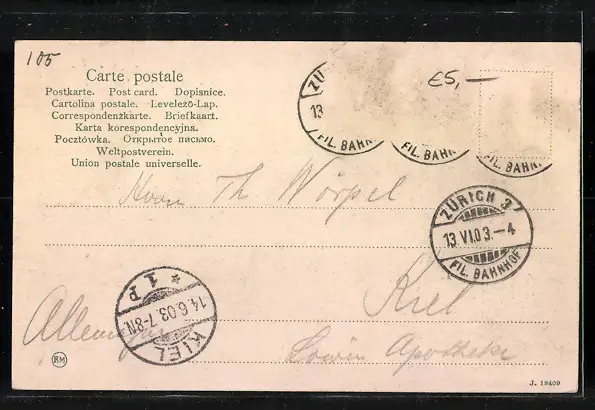 105
Carte postale
£5,—
Postkarte. Post card. Dopisnice.
Cartolina postale. Levelező-Lap.
Correspondenzkarte. Briefkaart.
Karta korespondencyjna.
Pocztówka. Открытое письмо.
Weltpostverein.
Union postale universelle.
ZÜ
13
FIL. BAHN
FIL. BAHN
FIL. BAHN
Herrn Th Wörpel
ZÜRICH 3
13.VI.03.–4
FIL. BAHNHOF
* 1 P
14.6.03.7-8N
KIEL
Kiel
Allemagne
Löwen Apotheke
RM
J. 18409